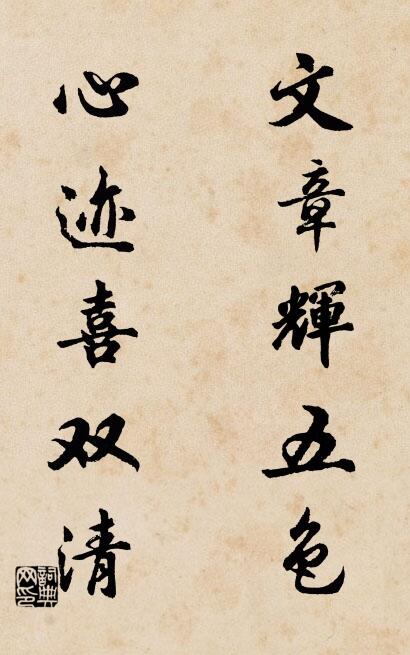 文章輝五色
心迹喜双清
詞典网印